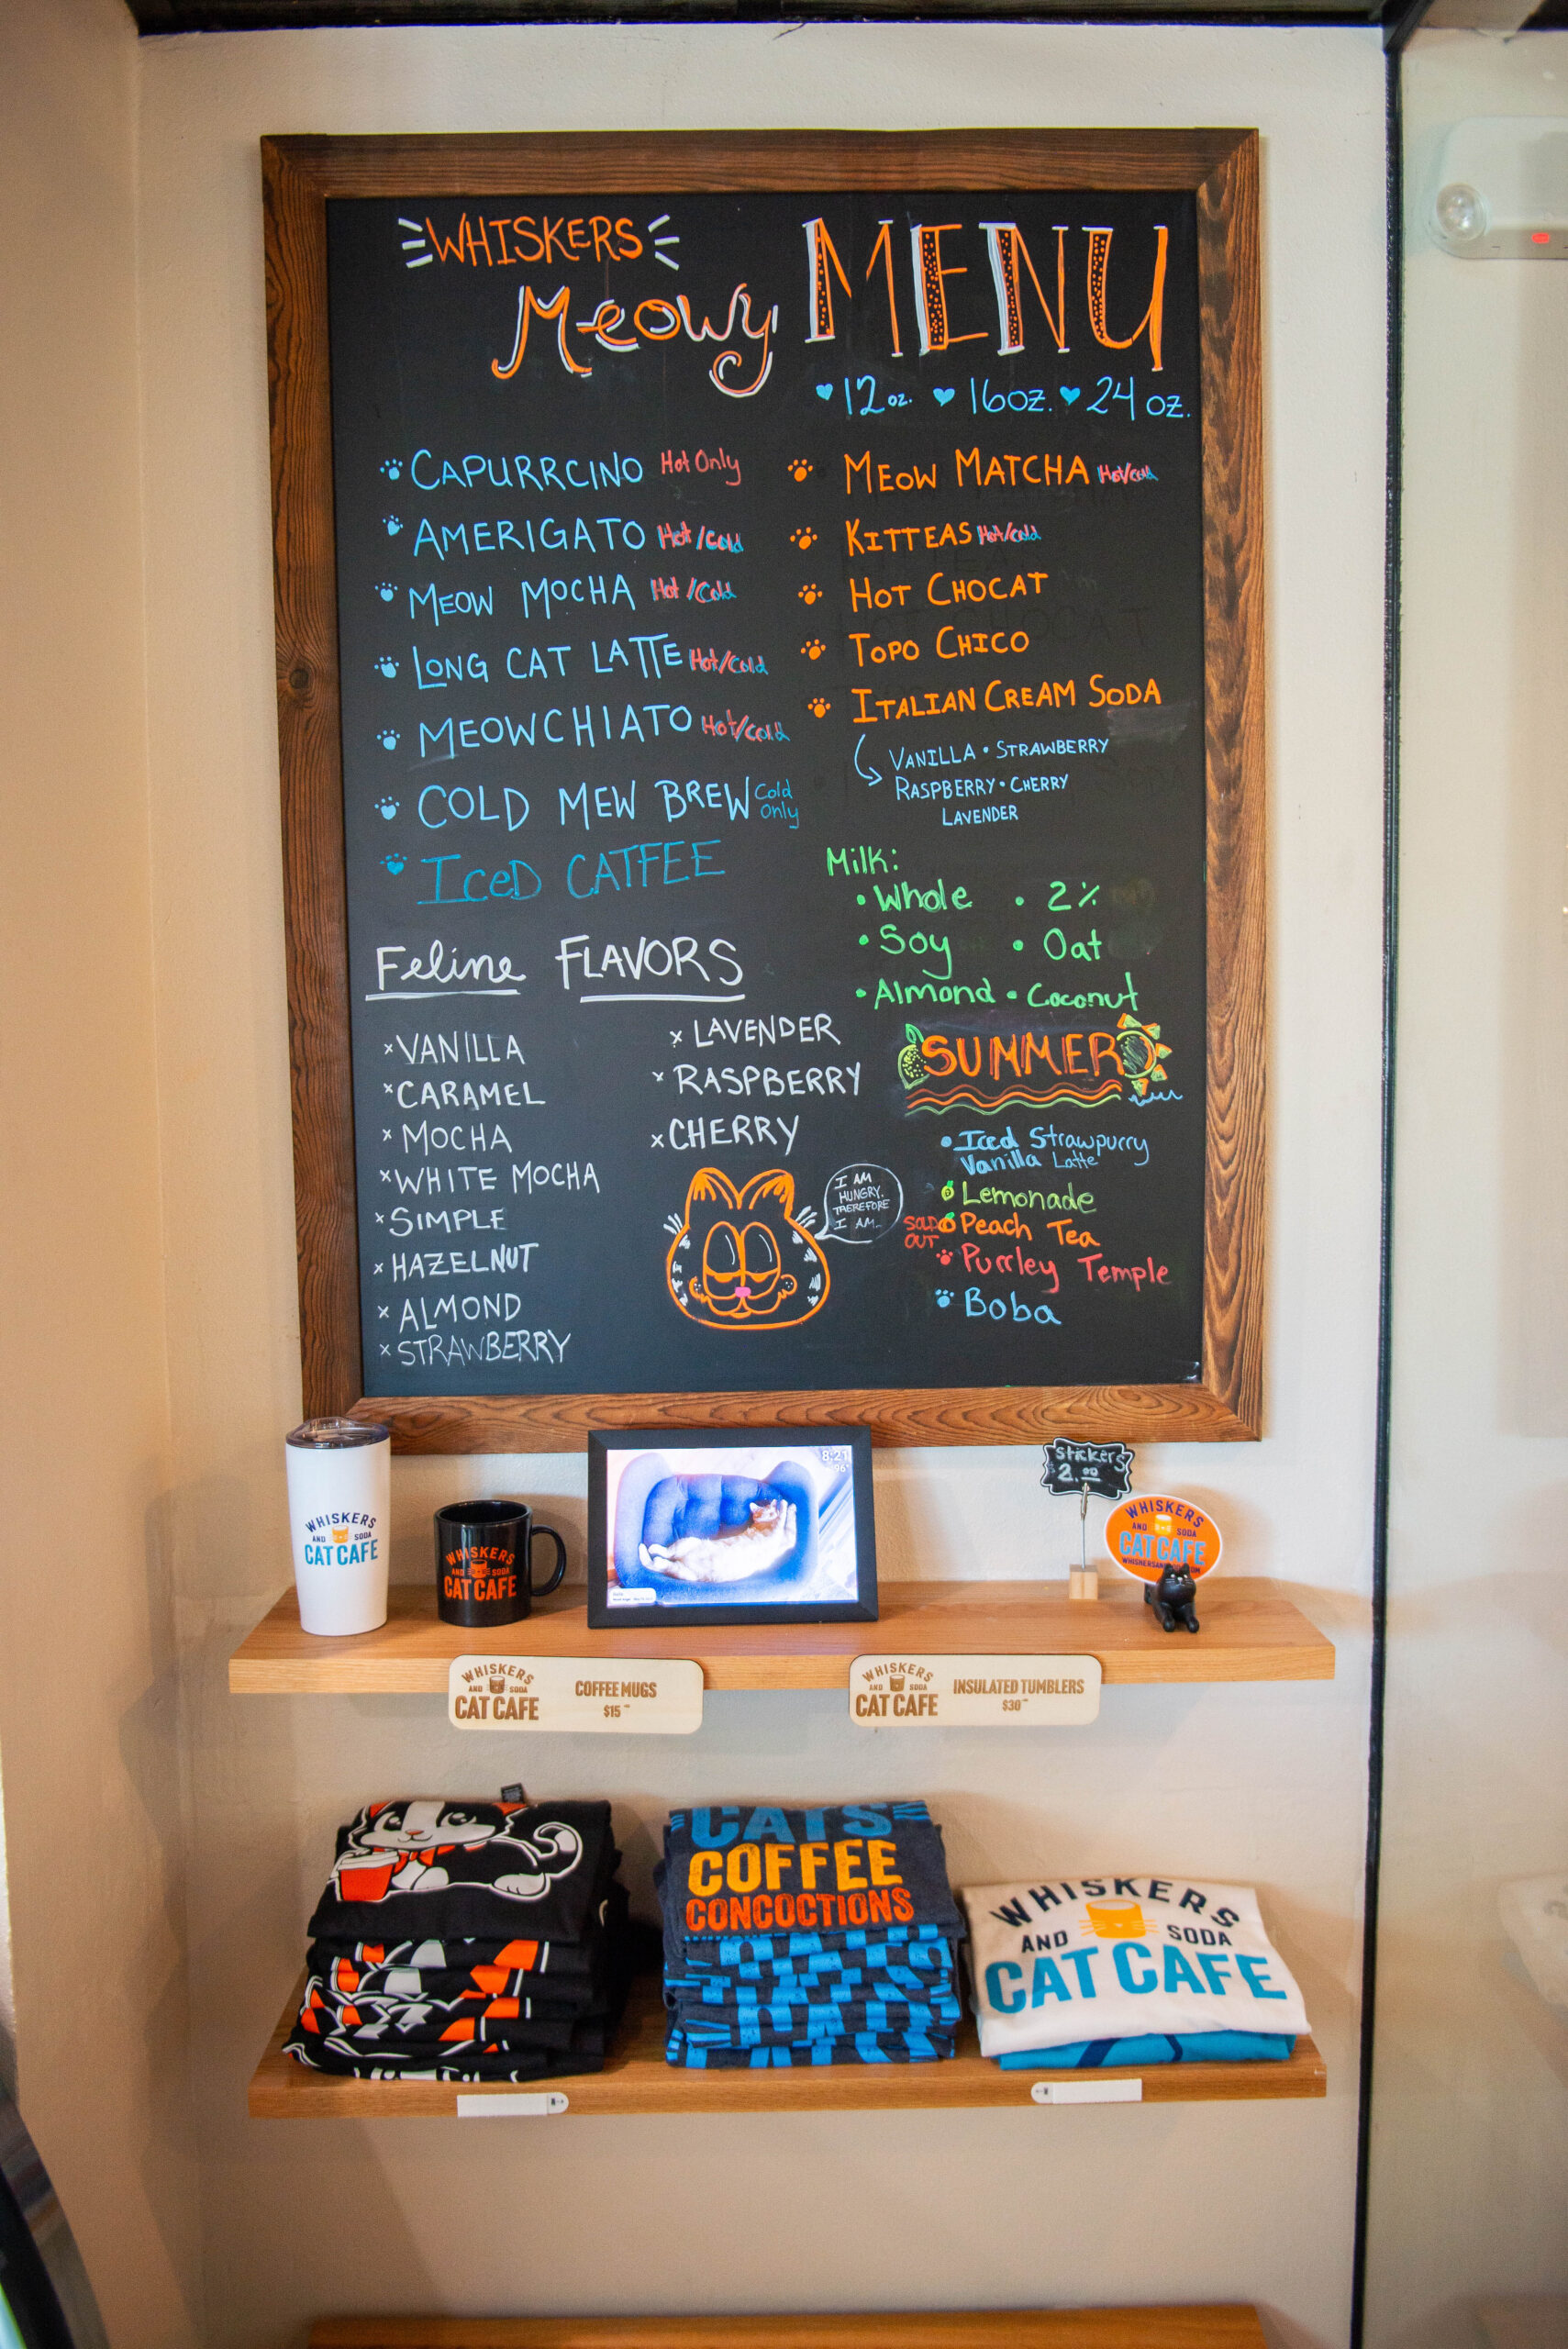 WHISKERS
Meowy MENU
12 oz. 16oz. 24 oz.
CAPURRCINO Hot Only
AMERIGATO Hot/Cold
MEOW MOCHA Hot/Cold
LONG CAT LATTE Hot/Cold
MEOWCHIATO Hot/Cold
COLD MEW BREW Cold Only
ICeD CATFEE
MEOW MATCHA Hot/Cold
KITTEAS Hot/Cold
HOT CHOCAT
TOPO CHICO
ITALIAN CREAM SODA
VANILLA • STRAWBERRY
RASPBERRY • CHERRY
LAVENDER
Milk:
• Whole • 2%
• Soy • Oat
• Almond • Coconut
Feline FLAVORS
x VANILLA
x CARAMEL
x MOCHA
x WHITE MOCHA
x SIMPLE
x HAZELNUT
x ALMOND
x STRAWBERRY
x LAVENDER
x RASPBERRY
x CHERRY
I AM
HUNGRY.
THEREFORE
I AM..
SUMMER
• Iced Strawpurry
Vanilla Latte
Lemonade
SOLD OUT Peach Tea
Purrley Temple
Boba
WHISKERS
AND SODA
CAT CAFE
WHISKERS
AND SODA
CAT CAFE
8:21
96°
Stickers
2.00
WHISKERS
AND SODA
CAT CAFE
WHISKERS
AND SODA
CAT CAFE
COFFEE MUGS
$15
WHISKERS
AND SODA
CAT CAFE
INSULATED TUMBLERS
$30
CATS
COFFEE
CONCOCTIONS
WHISKERS
AND SODA
CAT CAFE